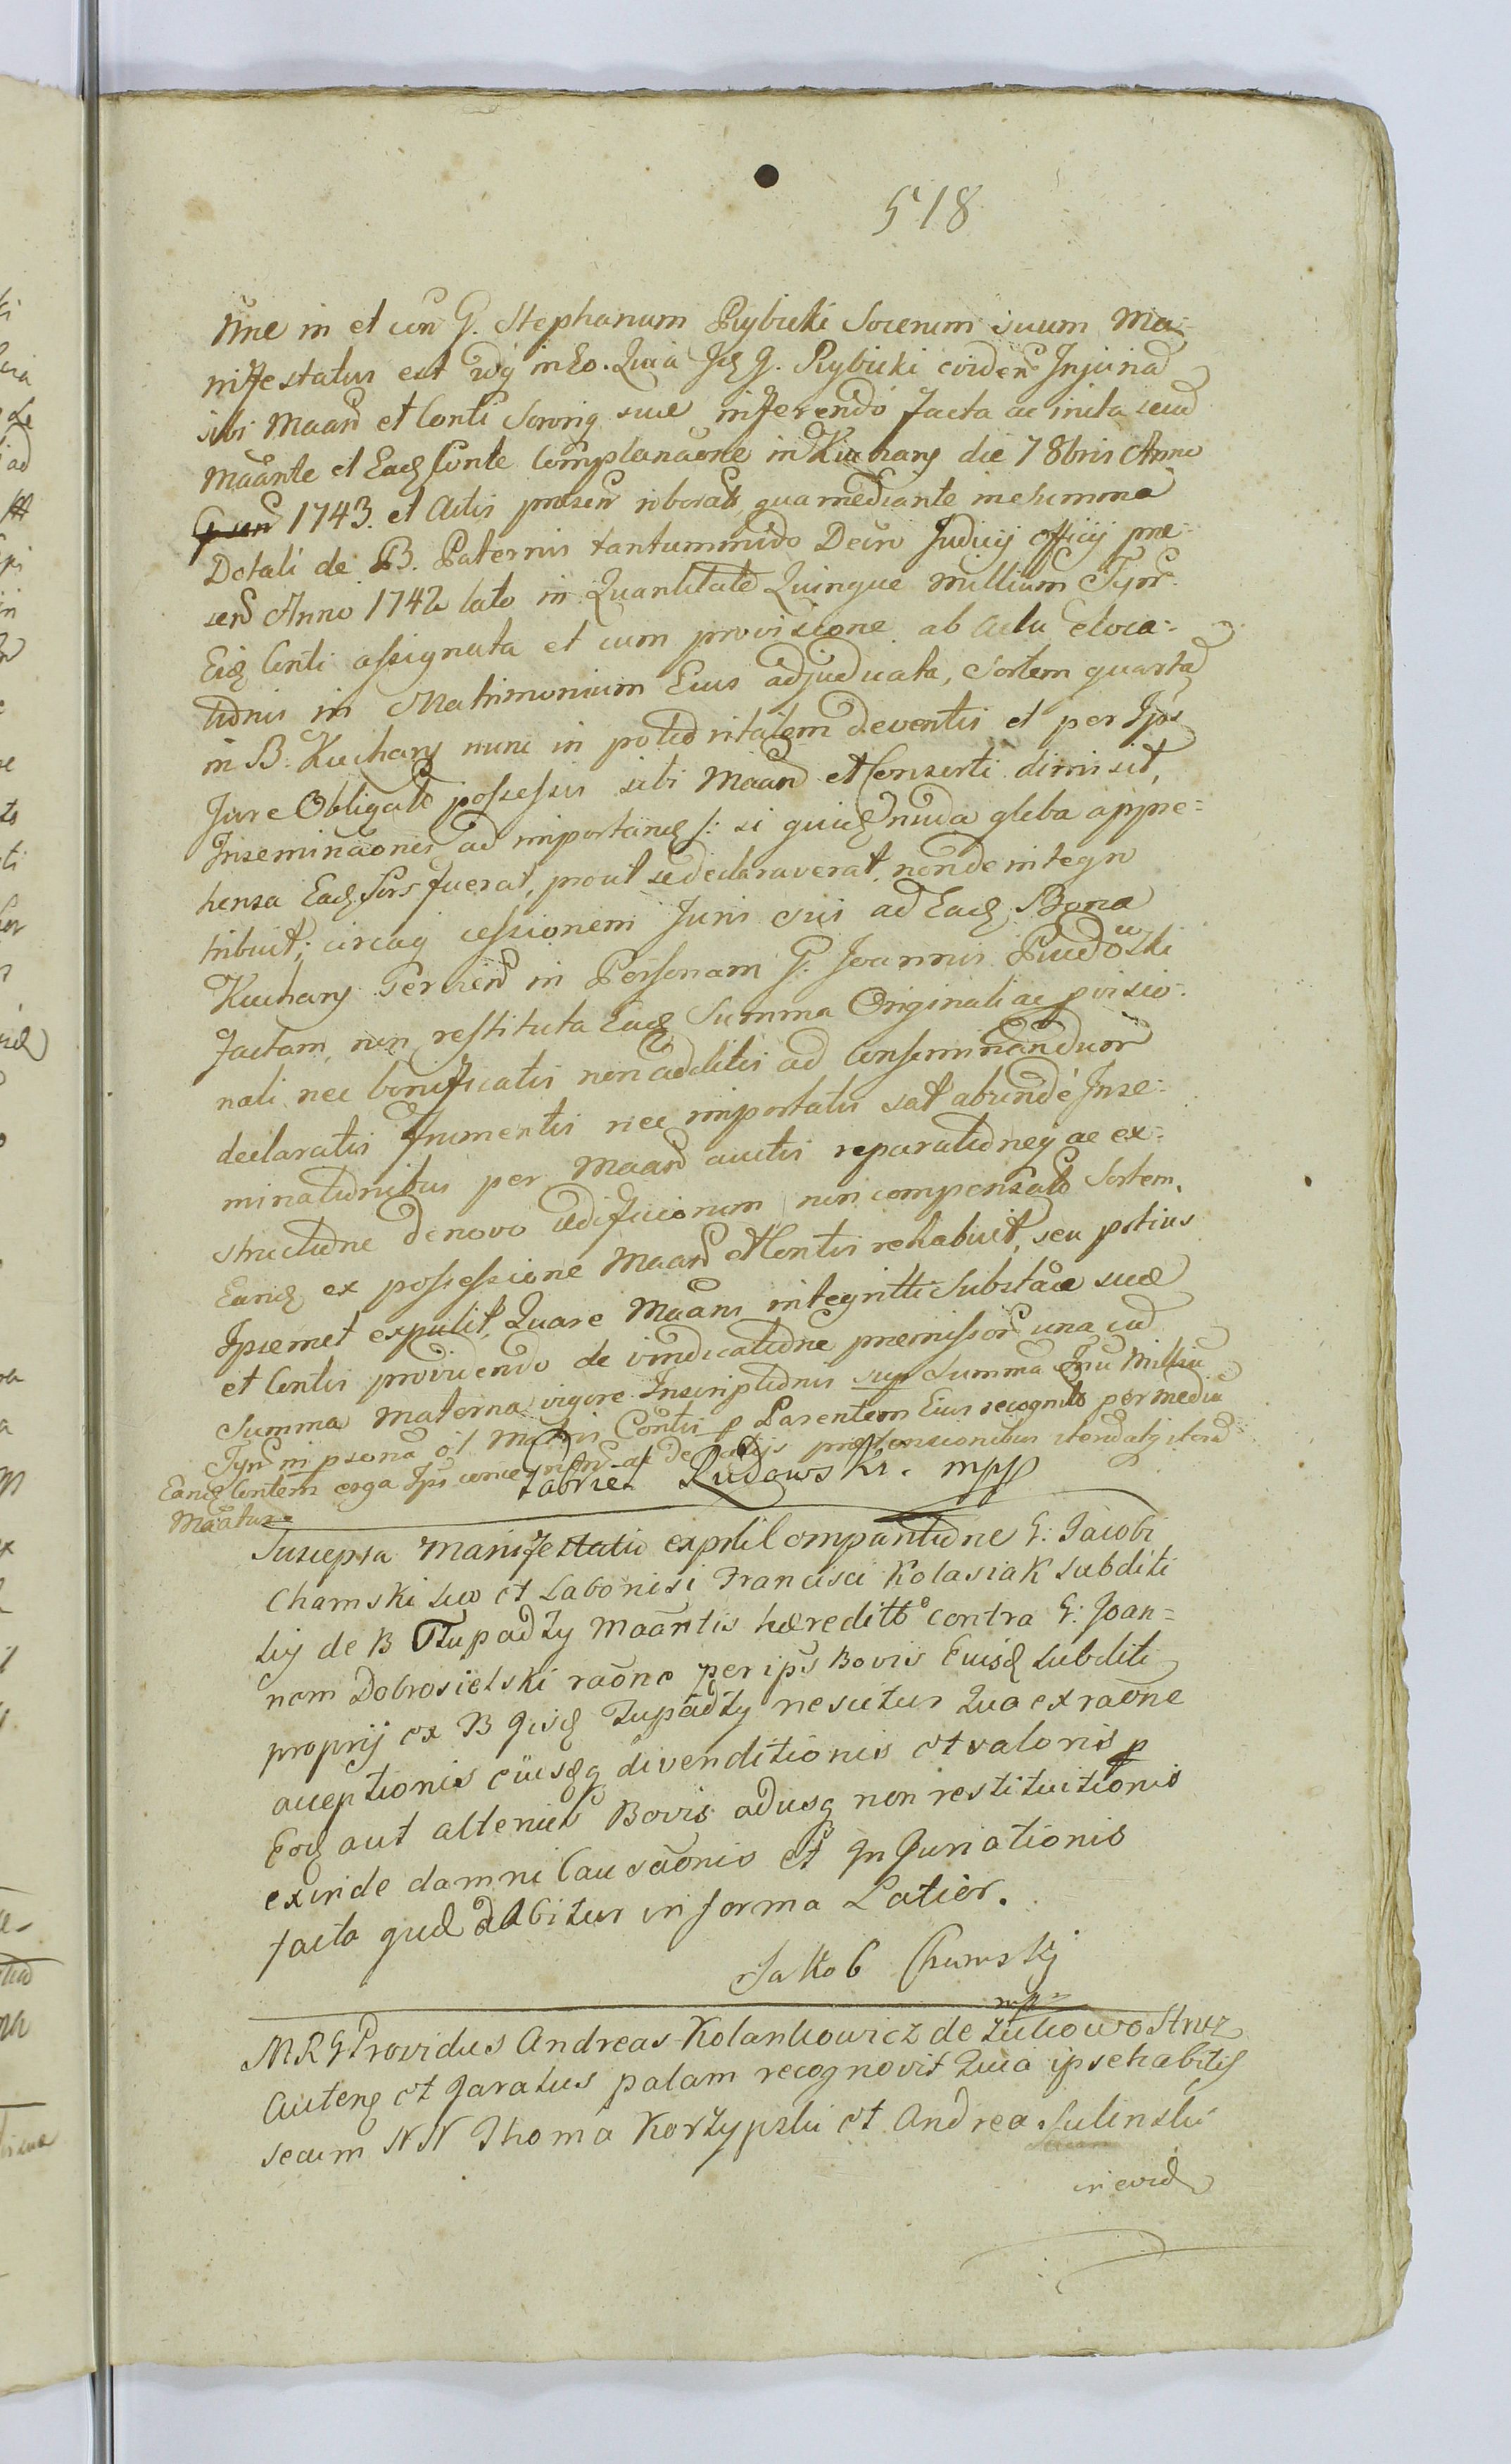 518
nne in et con G. Stephanum Rybicki Socerum suum Ma-
niffestatus est idq in Eo. Quia Jd G. Rybicki eviden Injuria
sibi Maan et Conti Sororiq suæ inferendo facta ac inita secu
Maante et Ead Conte Complanaone in Kuchary die 7 8bris Anno
1743. et Actis præsen roborata qua mediante in summa
Dotali de B. Paternis tantummodo Decro Judicij officij præ-
sen Anno 1742 lato in Quantitate Quinque Millium Tynf.
Eid Conti assignata et cum provisione ab actu eloca-
tionis in Matrimonium Eius adjudicata, Sortem quarta
in B. Kuchary nunc in potioritatem deventis et per Ips
Jure Obligato possessis sibi Maan et Consorti dimisit,
Inseminaones ad importand /: si quid nuda gleba appre-
hensa Ead Sors fuerat, prout se declaraverat, non de integro
tribuit; circaq cessionem Juris sui ad Ead Bona
Kuchary Servien in Personam G. Joannis Pudłowski
factam, non restituta Ead Summa Originali ac pvisio-
nali nec bonificatis non additis ad Conseminanduor
declaratis frumentis nec importatis sat abunde Inse-
minationibus per Maan auctis reparationeq ac ex-
structione denovo ædificiorum non compensato Sortem
Eand ex possessione Maan et Contis rehabuit, seu potius
Ipsemet expulit, Quare Maans integritti Substaæ suæ
et Contis providendo de vindicatione præmissor una cu
Summa Materna vigore Inscriptionis sup Summa Triu Milliu
Tynf in psona ol Matris Contis p Parentem Eius recognito per media
Eand Contem erga Ips concernen ac de alijs prætensionibus itend atq itend
Maatur
Gabriel Rudowski. mpp
Suscepta Manifestatio exptli Compantione G. Jacobi
Chamski suo et Laboriosi Francisci Kolasiak subditi
sui de B Tłupadzy Maantis hæreditto contra G. Joan-
nem Dobrosielski raone per ips Bovis Euisd subditi
proprij ex B Eisd Tupadzy nescitur Qua ex raone
acceptionis eiusdq divenditionis et valoris p
Eod aut alterius Bovis adusq non restitutionis
exinde damni Causaonis et Injuriationis
facta quæ dabitur in forma Latior.
Jakob Chamskj
mp
MRG Providus Andreas Kolankowicz de Zukowo Struz
Auteng et Jaratus palam recognovit Quia ipse habitis
secum NN Thoma Korzypski et Andrea Sulinski
in evid